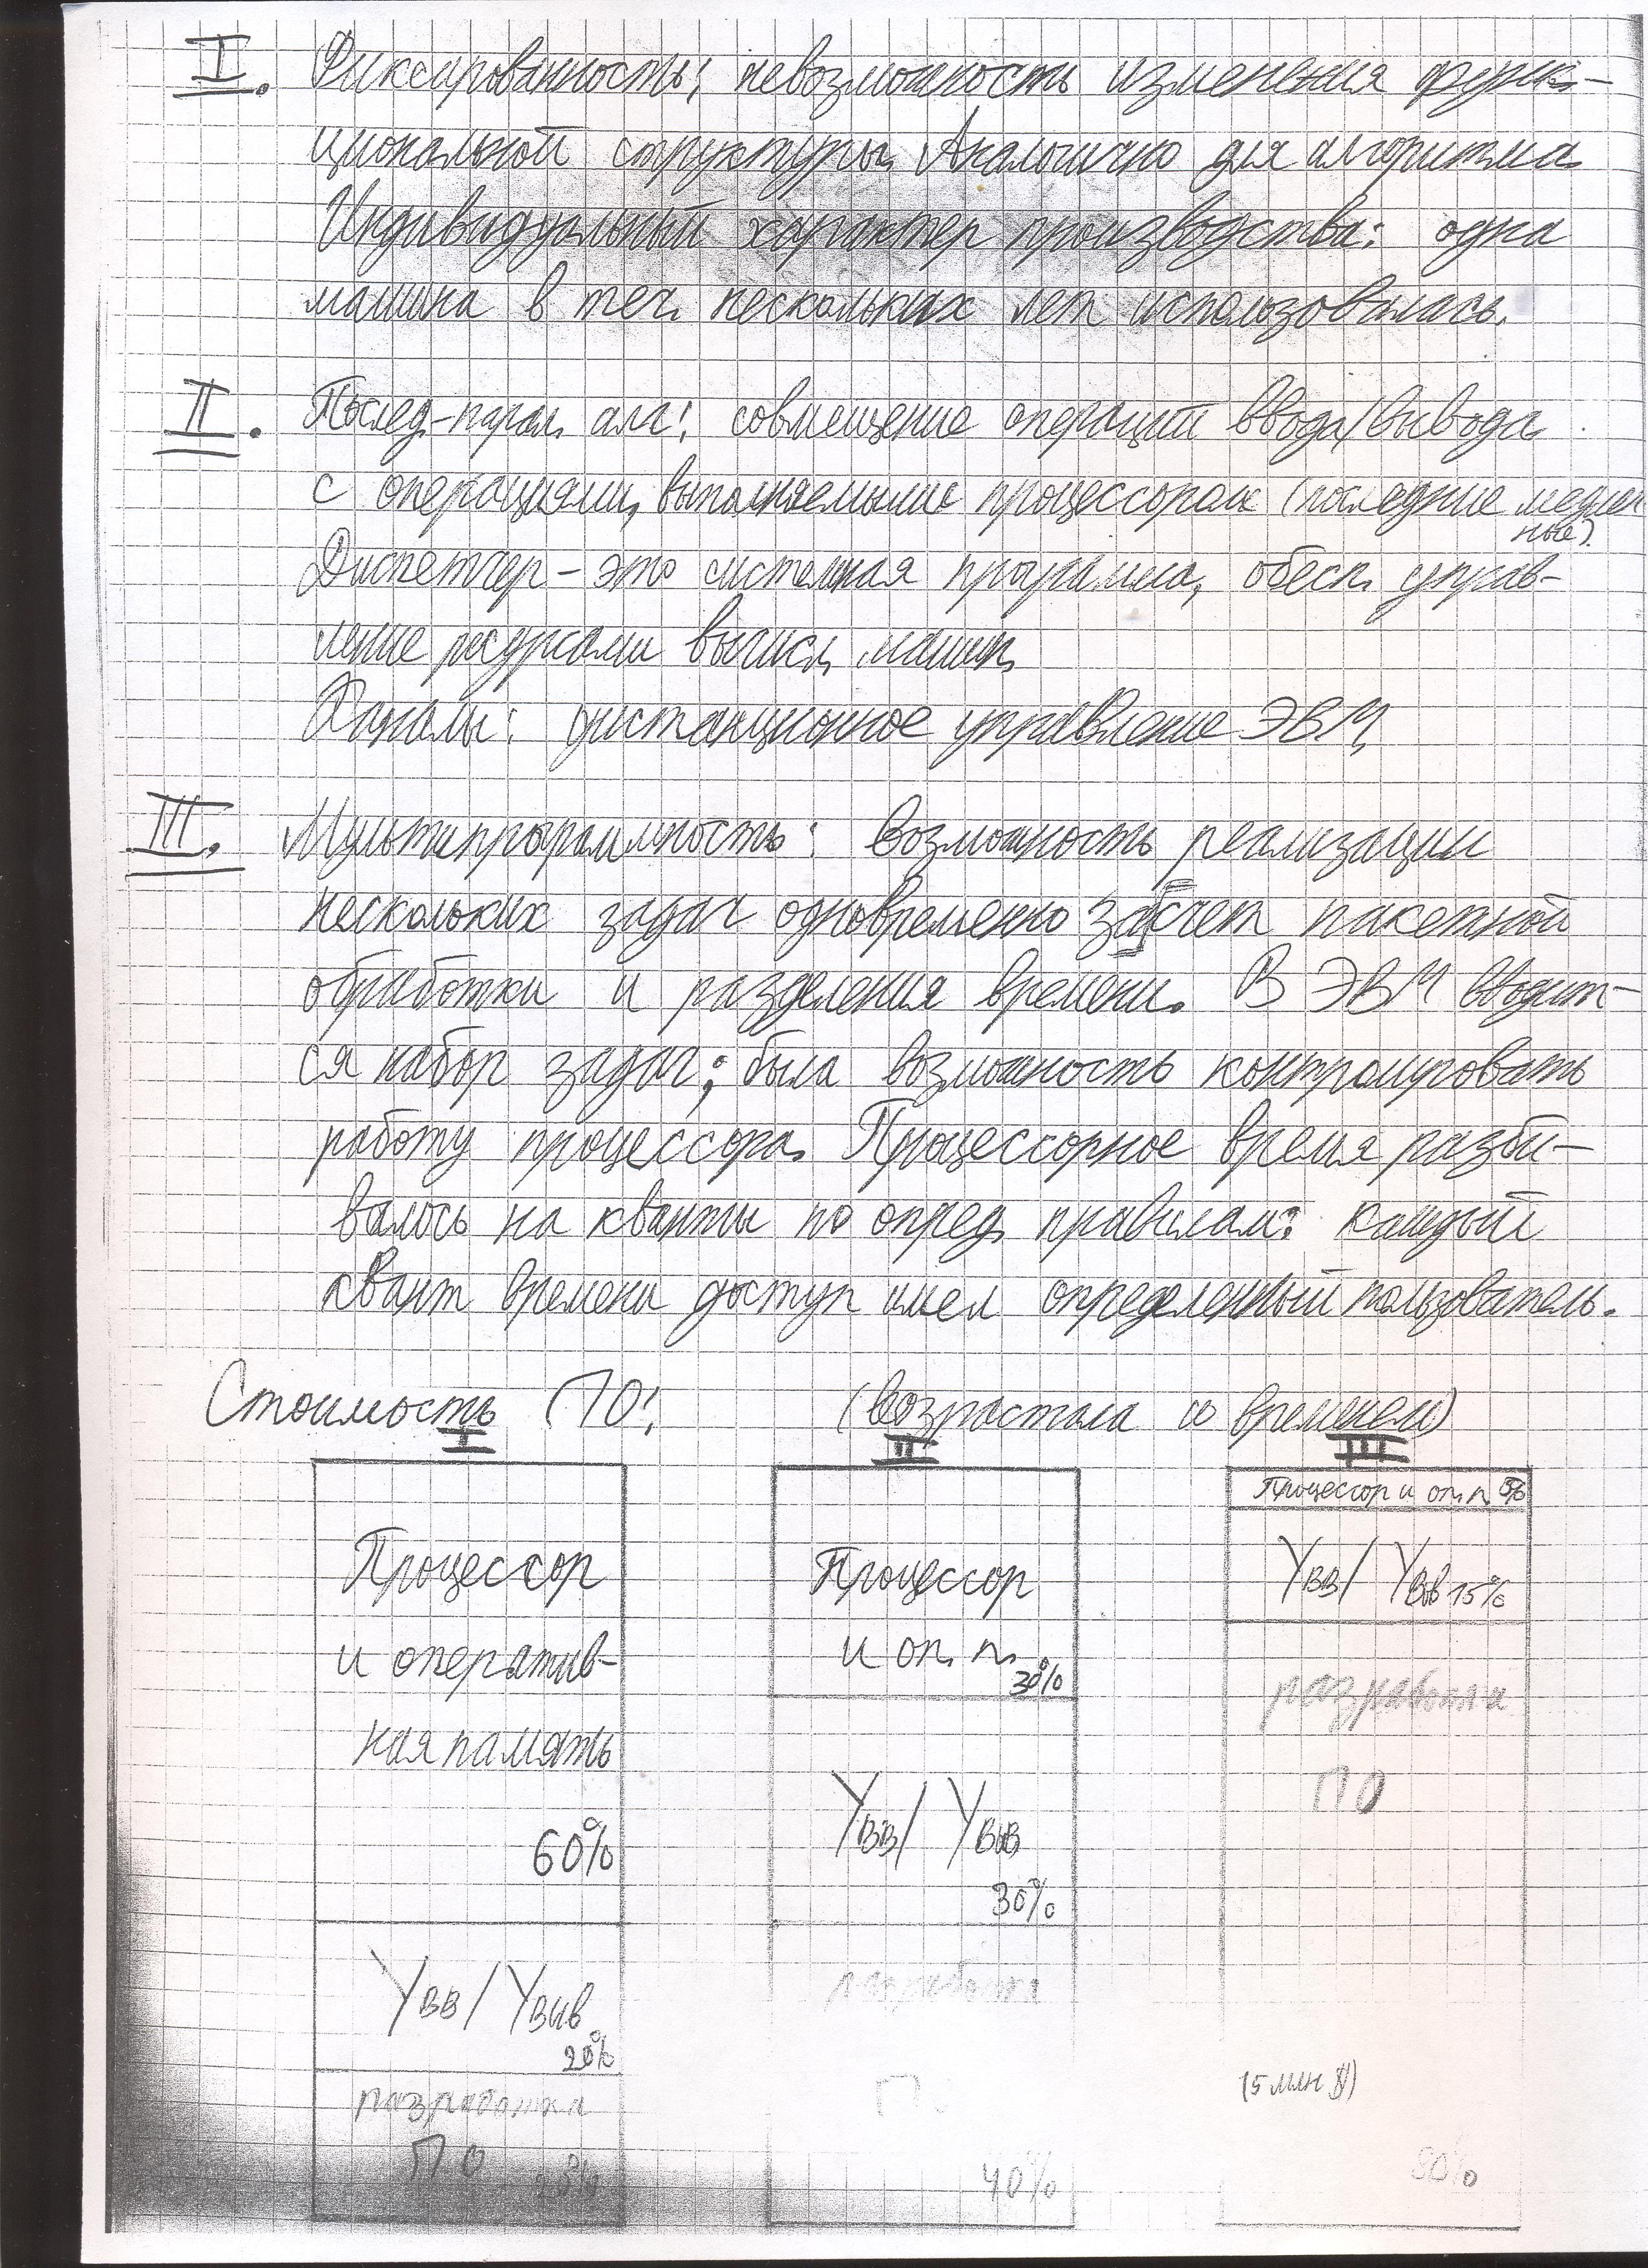 I. Фиксированность: невозможность изменения функ-
циональной структуры. Аналогично для алгоритма
Индивидуальный характер производства: одна
машина в теч. нескольких лет использовалась.
II. Послед-парал. алг: совмещение операций ввода/вывода
с операциями, выполняемыми процессором (последние медлен
ные).
Диспетчер – это системная программа, обесп. управ-
ление ресурсами вычисл. машин.
Каналы: дистанционное управление ЭВМ.
III. Мультипрограммность: возможность реализации
нескольких задач одновременно за счет пакетной
обработки и разделения времени. В ЭВМ вводит-
ся набор задач; была возможность контролировать
работу процессора. Процессорное время разби-
валось на кванты по опред. правилам: каждый
квант времени доступ имел определенный пользователь.
Стоимость ПО: (возрастала со временем)
I II III
Процессор
и оператив-
ная память
60%
Yвв/ Yвыв
20%
разработка
ПО 20%
Процессор
и оп. п.
30%
Yвв/ Yвыв
30%
разработка
П
40%
Процессор и оп. п 5%
Yвв/ Yвыв 15%
разработка
ПО
(5 млн $)
80%